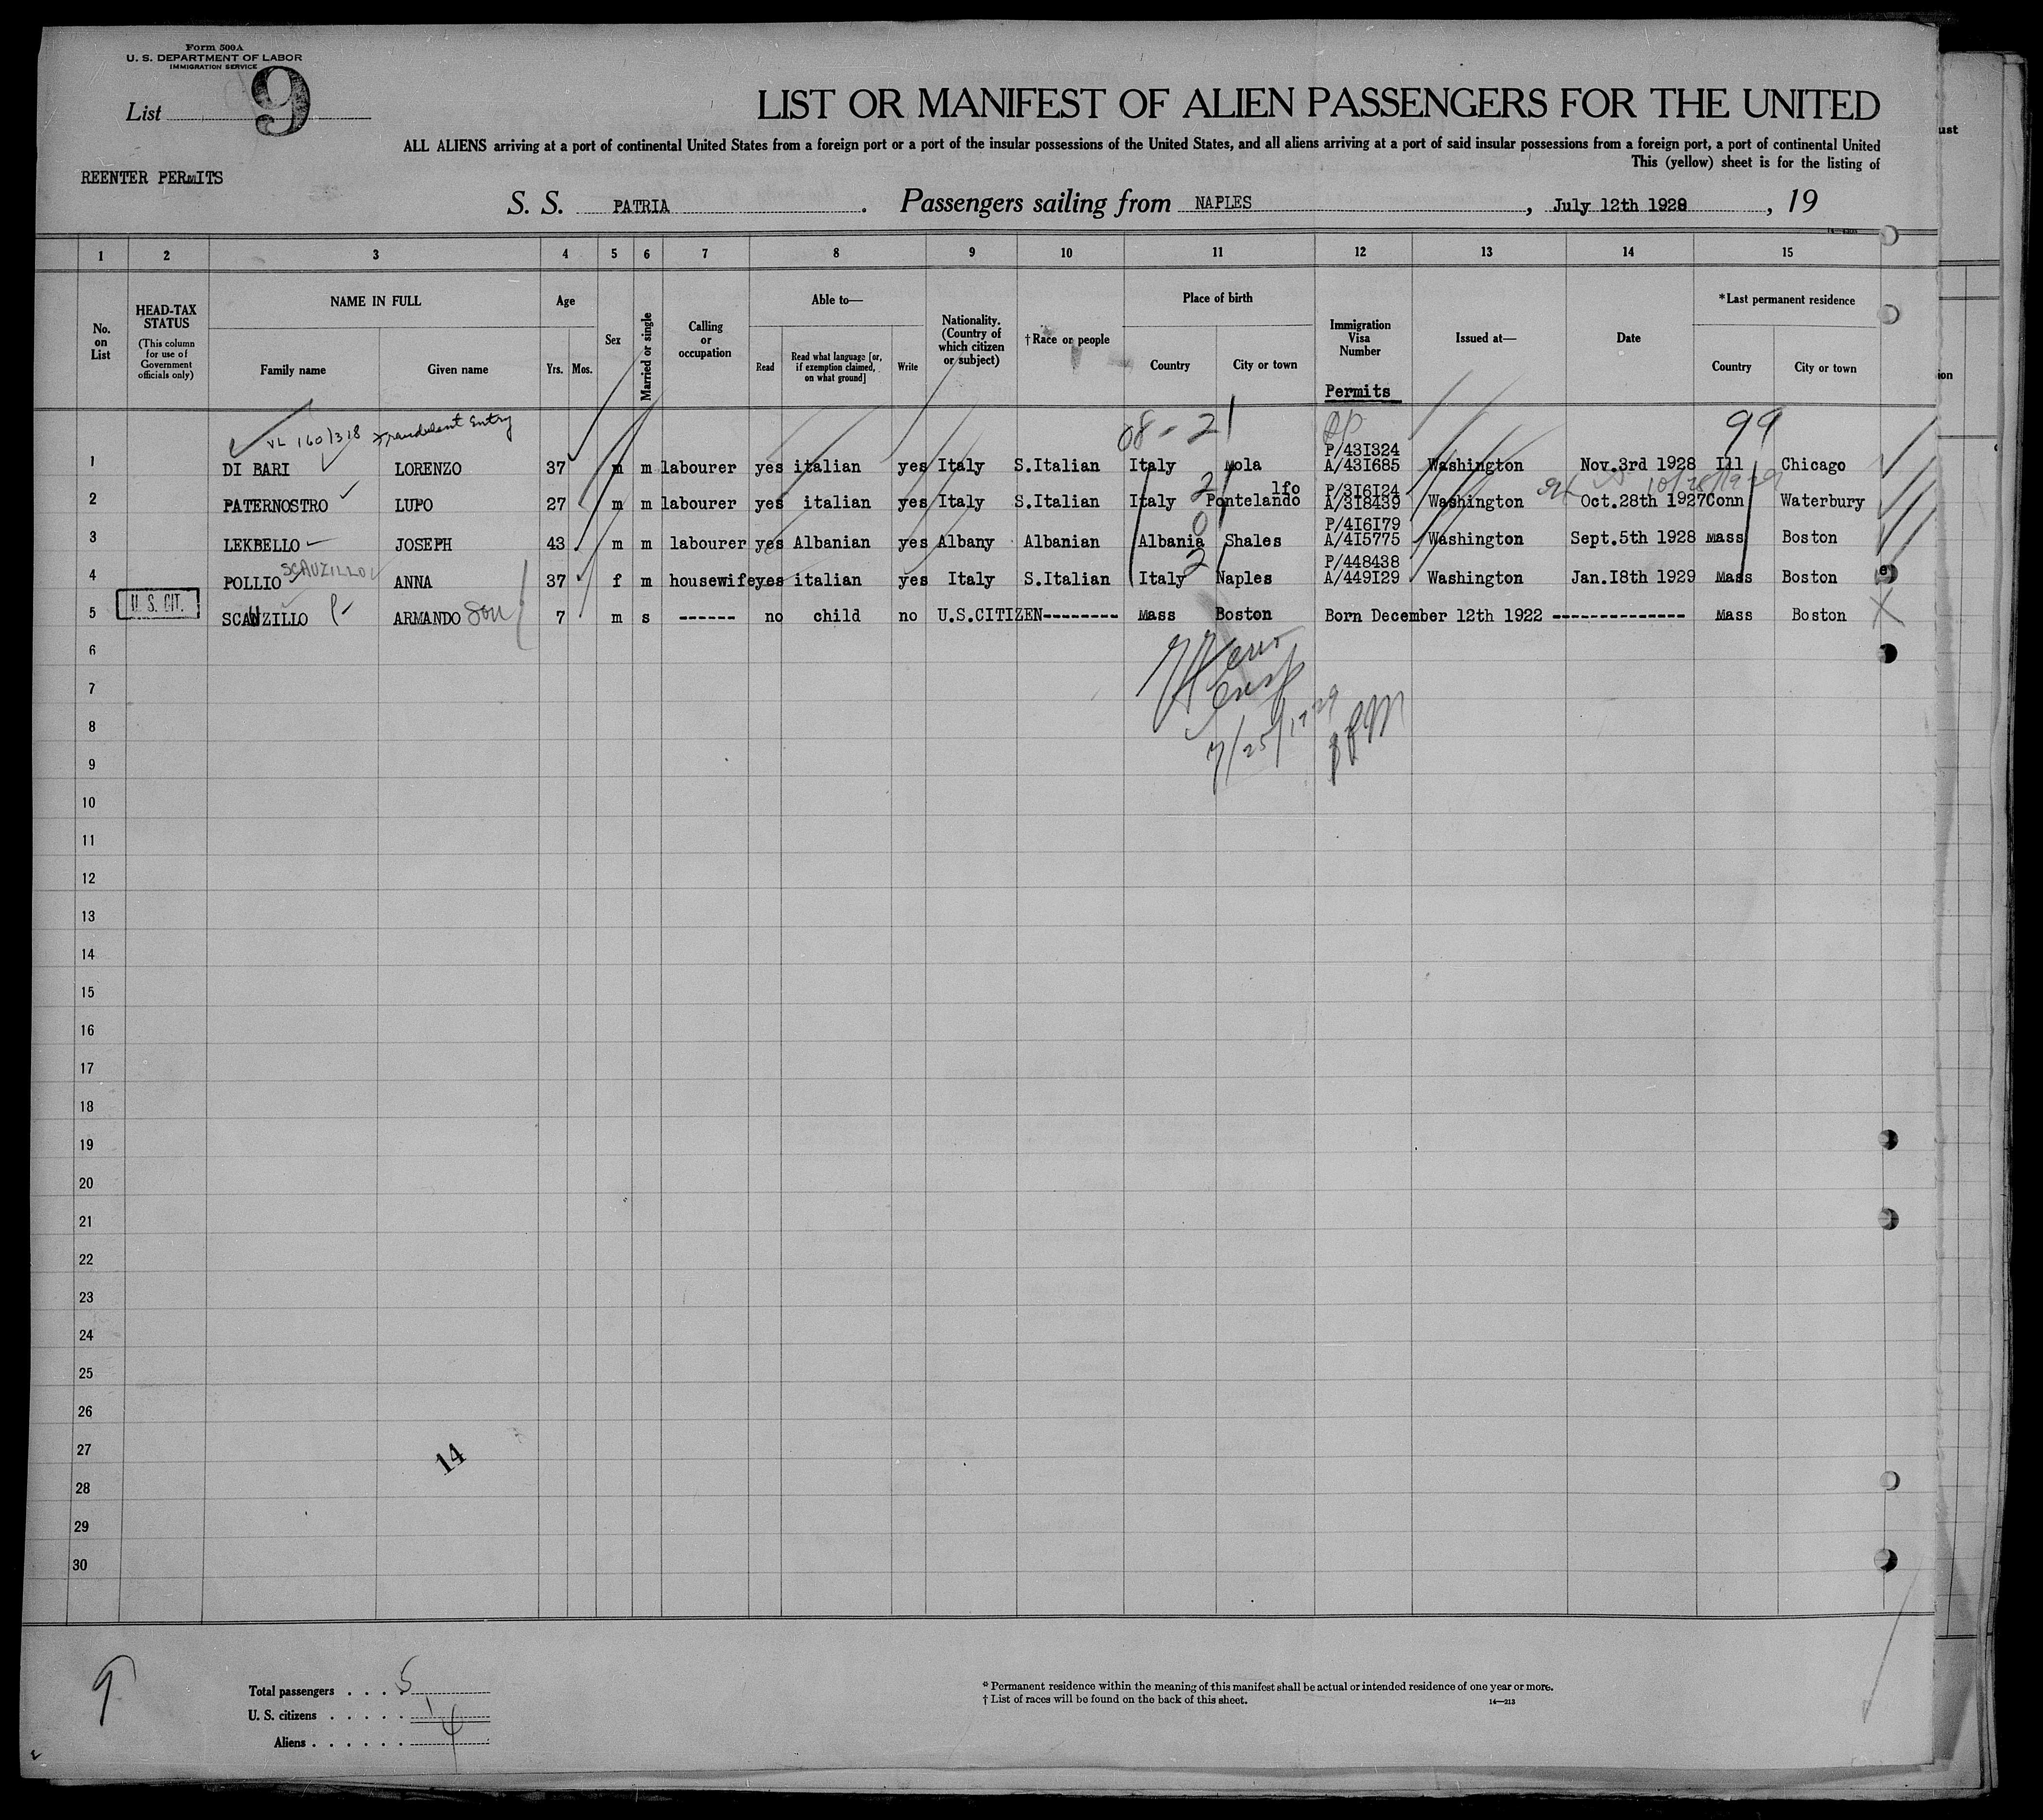 Form 500A
U. S. DEPARTMENT OF LABOR
IMMIGRATION SERVICE
List 9
LIST OR MANIFEST OF ALIEN PASSENGERS FOR THE UNITED
ALL ALIENS arriving at a port of continental United States from a foreign port or a port of the insular possessions of the United States, and all aliens arriving at a port of said insular possessions from a foreign port, a port of continental United
This (yellow) sheet is for the listing of
REENTER PERMITS
S. S. PATRIA. Passengers sailing from NAPLES, July 12th 1929, 19
1 2 3 4 5 6 7 8 9 10 11 12 13 14 15
No. on List
HEAD-TAX STATUS
(This column for use of Government officials only)
NAME IN FULL
Family name Given name
Age
Yrs. Mos.
Sex
Married or single
Calling or occupation
Able to—
Read Read what language [or, if exemption claimed, on what ground] Write
Nationality. (Country of which citizen or subject)
†Race or people
Place of birth
Country City or town
Immigration Visa Number
Permits
Issued at—
Date
*Last permanent residence
Country City or town
VL 160/318 Fraudulent Entry 08-21 99
P/43I324
1 DI BARI LORENZO 37 m m labourer yes italian yes Italy S.Italian Italy Mola A/43I685 Washington Nov.3rd 1928 Ill Chicago
2 lfo P/3I6I24 10/28/1929
2 PATERNOSTRO LUPO 27 m m labourer yes italian yes Italy S.Italian Italy Pontelando A/3I8439 Washington Oct.28th 1927 Conn Waterbury
0 P/4I6I79
3 LEKBELLO JOSEPH 43 m m labourer yes Albanian yes Albany Albanian Albania Shales A/4I5775 Washington Sept.5th 1928 Mass Boston
SCAUZILLO 2 P/448438
4 POLLIO ANNA 37 f m housewife yes italian yes Italy S.Italian Italy Naples A/449I29 Washington Jan.I8th 1929 Mass Boston
U. S. CIT.
5 SCAUZILLO ARMANDO son 7 m s ------ no child no U.S.CITIZEN-------- Mass Boston Born December 12th 1922 -------------- Mass Boston
6
7
8
7/25/1929
9
10
11
12
13
14
15
16
17
18
19
20
21
22
23
24
25
26
27
14
28
29
30
9
Total passengers . . . 5
U. S. citizens . . . . . 1
Aliens . . . . . . 4
* Permanent residence within the meaning of this manifest shall be actual or intended residence of one year or more.
† List of races will be found on the back of this sheet.
14—213